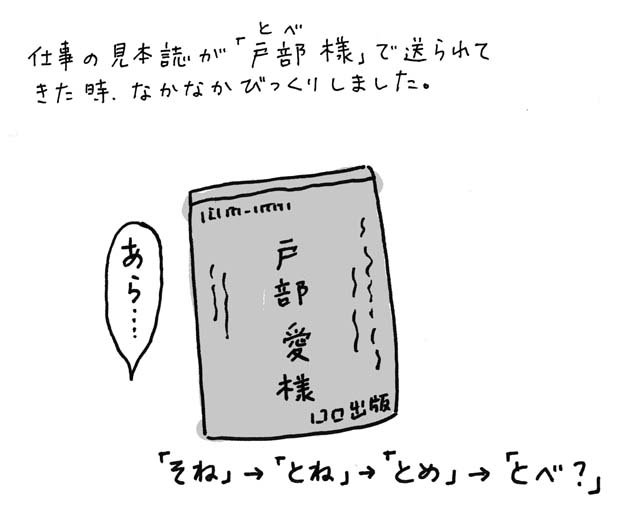 とべ
仕事の見本誌が「戸部様」で送られて
きた時、なかなかびっくりしました。
あら……
戸部愛様
出版
「そね」→「とね」→「とめ」→「とべ？」